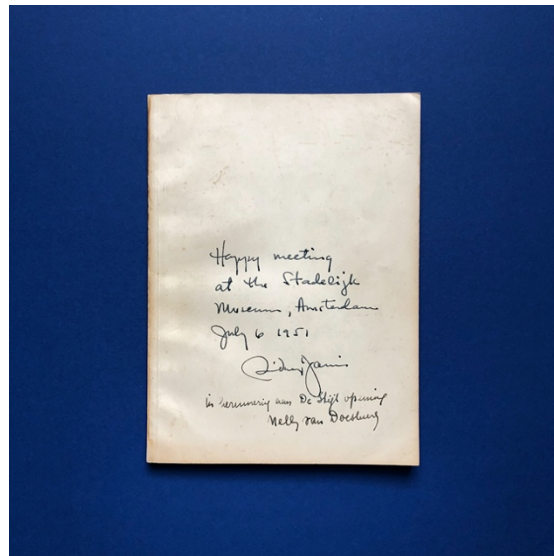 Happy meeting
at the Stadelijk
Museum, Amsterdam
July 6 1951
Sidney Janis
in herinnering aan De Stijl opening
Nelly van Doesburg